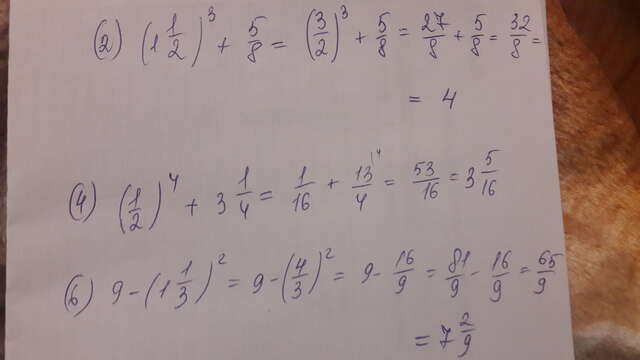 (2) (1 1/2)^3 + 5/8 = (3/2)^3 + 5/8 = 27/8 + 5/8 = 32/8 =
= 4
(4) (1/2)^4 + 3 1/4 = 1/16 + 13^(4/4 = 53/16 = 3 5/16
(6) 9 - (1 1/3)^2 = 9 - (4/3)^2 = 9 - 16/9 = 81/9 - 16/9 = 65/9
= 7 2/9